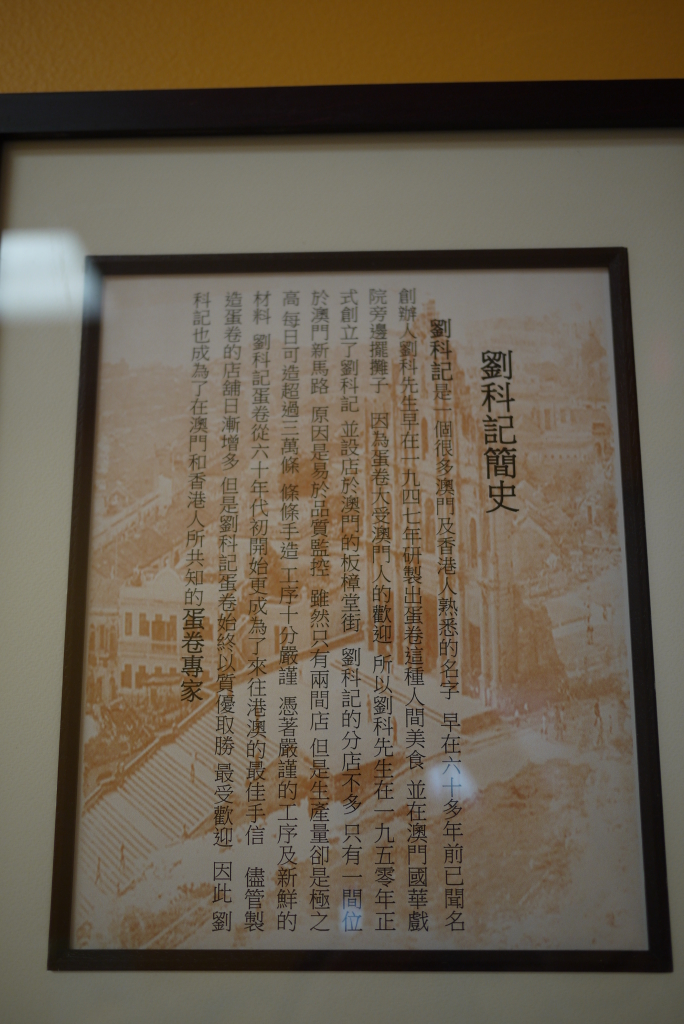 劉科記簡史
劉科記是一個很多澳門及香港人熟悉的名字 早在六十多年前已聞名
創辦人劉科先生早在一九四七年研製出蛋卷這種人間美食 並在澳門國華戲
院旁邊擺攤子 因為蛋卷大受澳門人的歡迎 所以劉科先生在一九五零年正
式創立了劉科記 並設店於澳門的板樟堂街 劉科記的分店不多 只有一間位
於澳門新馬路 原因是易於品質監控 雖然只有兩間店 但是生產量卻是極之
高 每日可造超過三萬條 條條手造 工序十分嚴謹 憑著嚴謹的工序及新鮮的
材料 劉科記蛋卷從六十年代初開始更成為了來往港澳的最佳手信 儘管製
造蛋卷的店舖日漸增多 但是劉科記蛋卷始終以質優取勝 最受歡迎 因此 劉
科記也成為了在澳門和香港人所共知的蛋卷專家